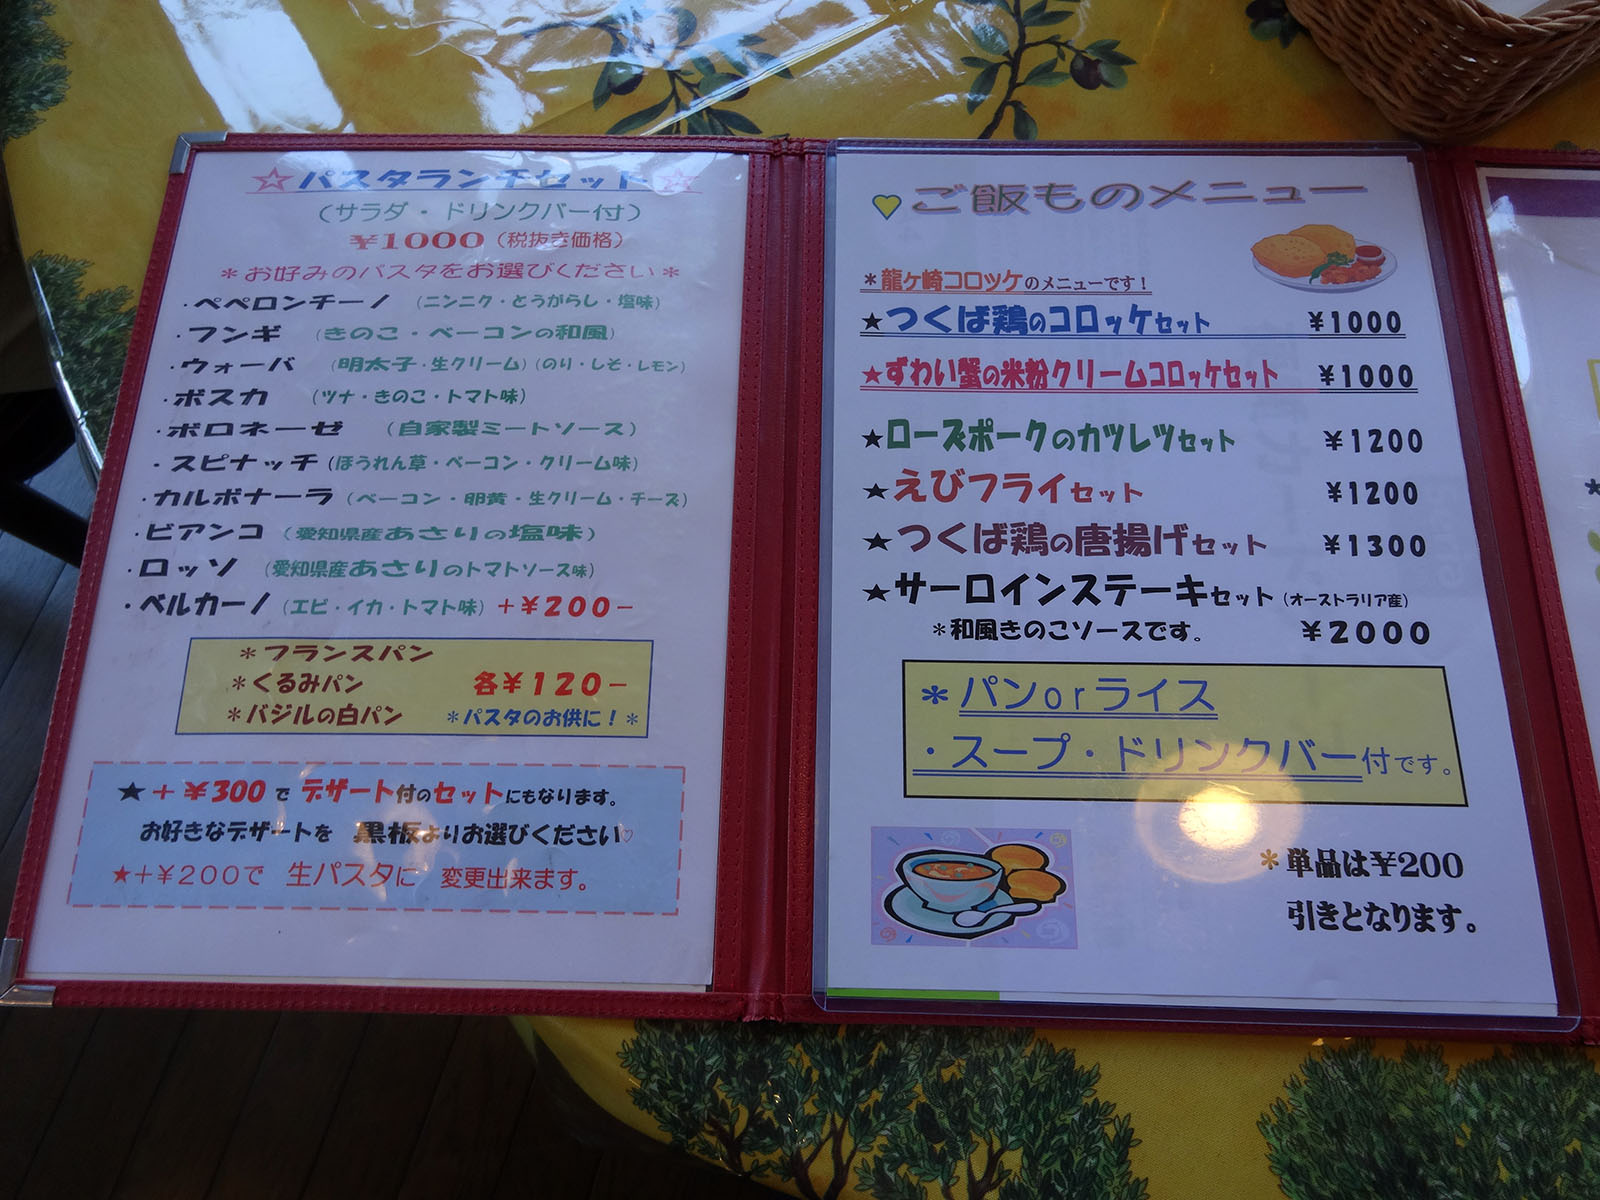 ☆パスタランチセット☆
（サラダ・ドリンクバー付）
¥1000（税抜き価格）
＊お好みのパスタをお選びください＊
・ペペロンチーノ （ニンニク・とうがらし・塩味）
・フンギ （きのこ・ベーコンの和風）
・ウォーバ （明太子・生クリーム）（のり・しそ・レモン）
・ボスカ （ツナ・きのこ・トマト味）
・ボロネーゼ （自家製ミートソース）
・スピナッチ（ほうれん草・ベーコン・クリーム味）
・カルボナーラ（ベーコン・卵黄・生クリーム・チーズ）
・ビアンコ（愛知県産あさりの塩味）
・ロッソ （愛知県産あさりのトマトソース味）
・ベルカーノ（エビ・イカ・トマト味）＋¥200－
＊フランスパン
＊くるみパン 各¥120－
＊バジルの白パン ＊パスタのお供に！＊
★＋¥300で デザート付のセットにもなります。
お好きなデザートを 黒板よりお選びください♡
★＋¥200で 生パスタに 変更出来ます。
ご飯ものメニュー
＊龍ヶ崎コロッケのメニューです！
★つくば鶏のコロッケセット ¥1000
★ずわい蟹の米粉クリームコロッケセット ¥1000
★ローズポークのカツレツセット ¥1200
★えびフライセット ¥1200
★つくば鶏の唐揚げセット ¥1300
★サーロインステーキセット（オーストラリア産）
＊和風きのこソースです。 ¥2000
＊パンorライス
・スープ・ドリンクバー付です。
＊単品は¥200
引きとなります。